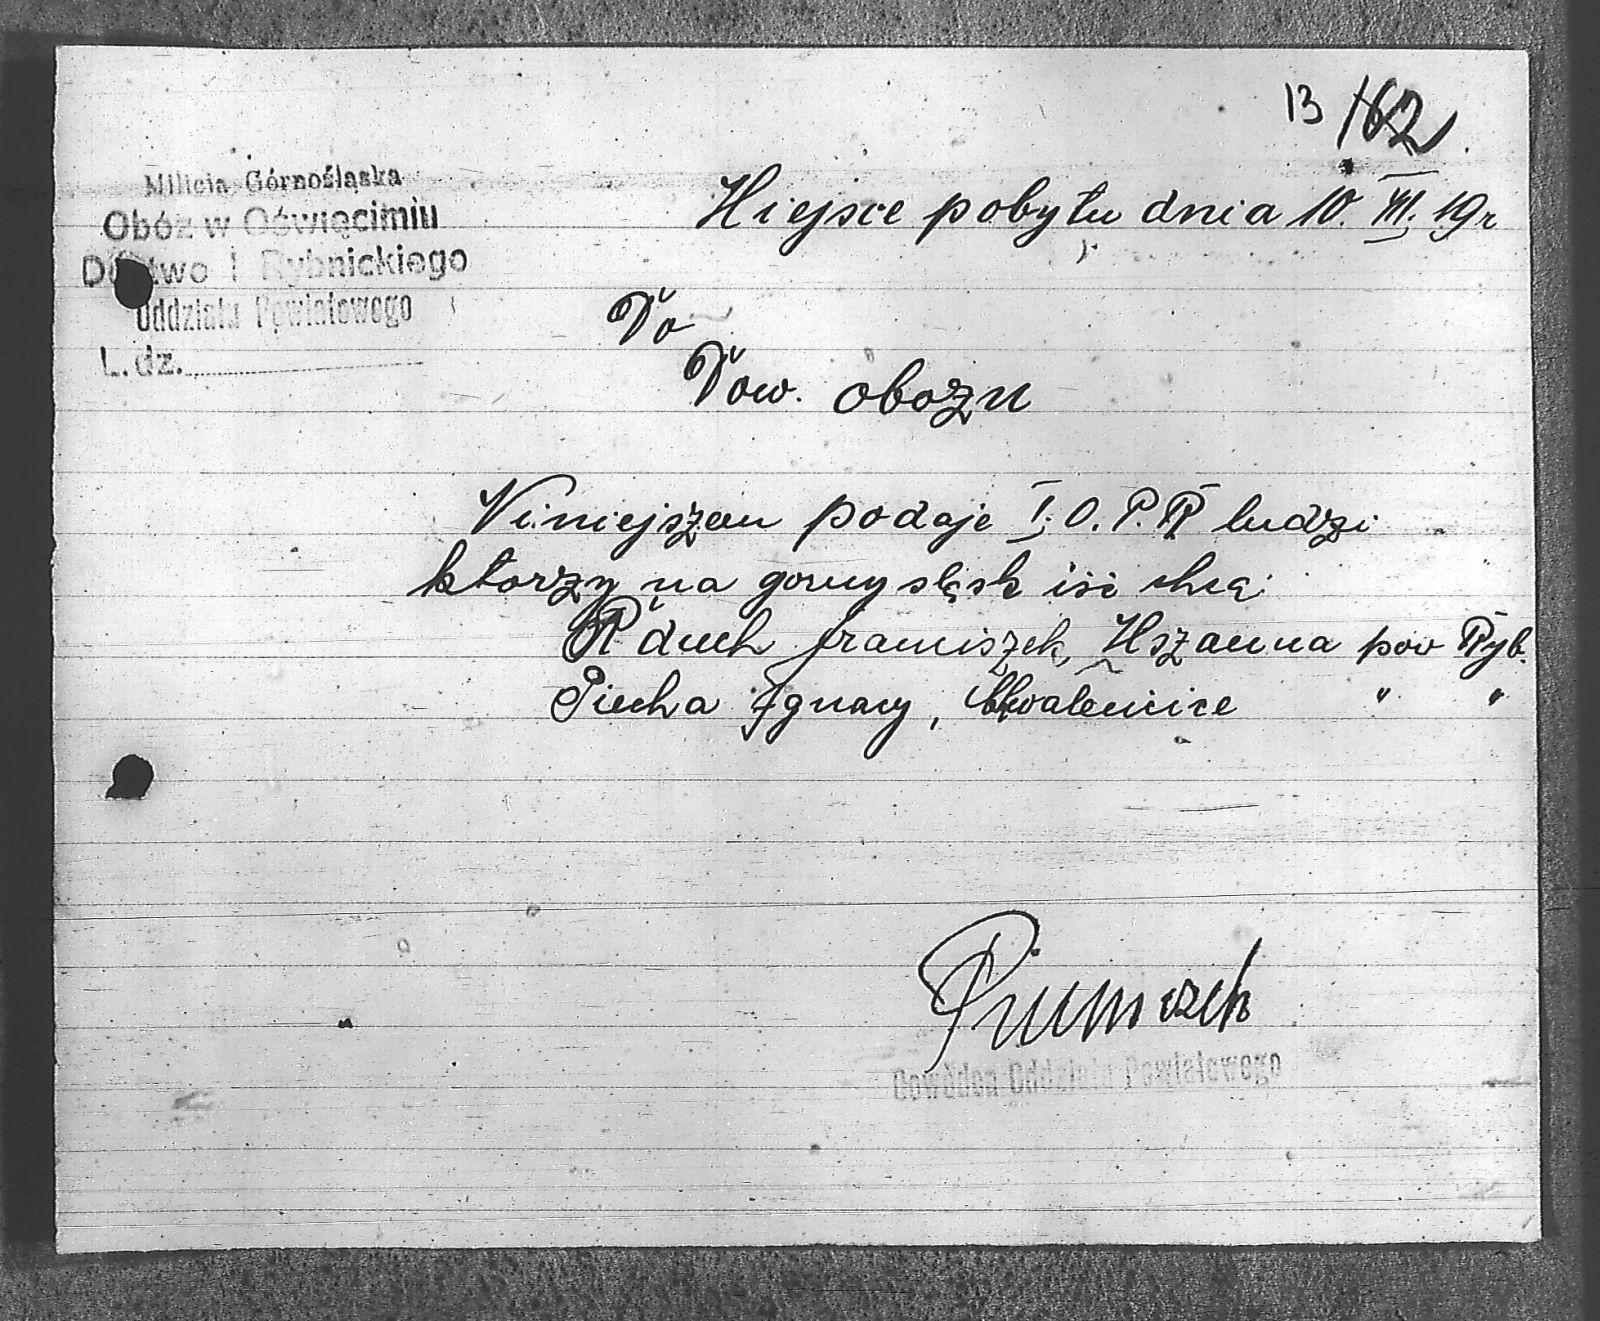 13 162
Milicja Górnośląska
Obóz w Oświęcimiu
D two I Rybnickiego
Oddziału Powiatowego
L. dz.
Miejsce pobytu dnia 10. VIII. 19r
Do
Dow. obozu
Niniejszem podaje I. O. P. R ludzi
ktorzy na gorny sląsk iść chcą:
Franciszek, Mszanna pow Ryb.
Piecha Ignacy, " "
Dowódca Oddziału Powiatowego